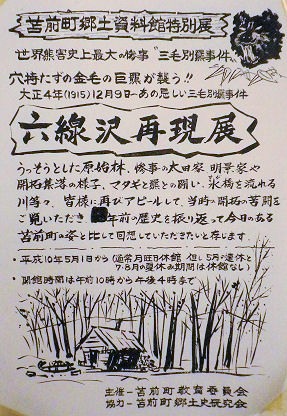 苫前町郷土資料館特別展
世界熊害史上最大の惨事“三毛別羆事件”
穴持たずの金毛の巨羆が襲う!!
大正4年(1915)12月9日～あの忌しい三毛別羆事件
六線沢再現展
うっそうとした原始林、惨事の太田家 明景家や
開拓集落の様子、マタギと羆との闘い、氷橋を流れる
川等々、皆様に再びアピールして、当時の開拓の苦闘を
ご覧いただき 年前の歴史を振り返って今日のある
苫前町の姿と比して回想していただきたいと存じます。
・平成10年5月1日から(通常月旺日休館 但し5月・連休と
7・8月の夏休み期間は休館なし)
・開館時間は午前10時から午後4時まで
主催－苫前町教育委員会
協力－苫前町郷土史研究会